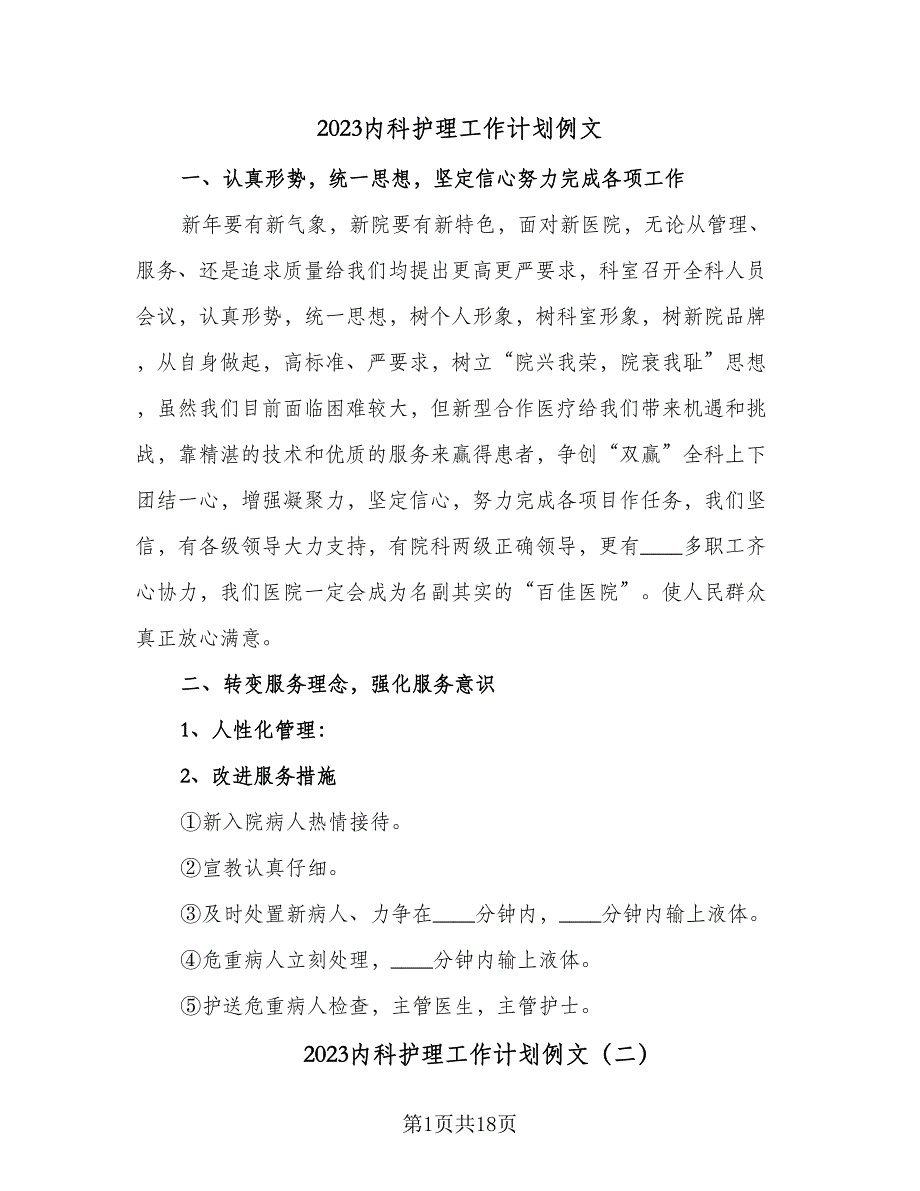 2023内科护理工作计划例文
一、认真形势，统一思想，坚定信心努力完成各项工作
新年要有新气象，新院要有新特色，面对新医院，无论从管理、
服务、还是追求质量给我们均提出更高更严要求，科室召开全科人员
会议，认真形势，统一思想，树个人形象，树科室形象，树新院品牌
，从自身做起，高标准、严要求，树立“院兴我荣，院衰我耻”思想
，虽然我们目前面临困难较大，但新型合作医疗给我们带来机遇和挑
战，靠精湛的技术和优质的服务来赢得患者，争创“双赢”全科上下
团结一心，增强凝聚力，坚定信心，努力完成各项目作任务，我们坚
信，有各级领导大力支持，有院科两级正确领导，更有____多职工齐
心协力，我们医院一定会成为名副其实的“百佳医院”。使人民群众
真正放心满意。
二、转变服务理念，强化服务意识
1、人性化管理：
2、改进服务措施
①新入院病人热情接待。
②宣教认真仔细。
③及时处置新病人、力争在____分钟内，____分钟内输上液体。
④危重病人立刻处理，____分钟内输上液体。
⑤护送危重病人检查，主管医生，主管护士。
2023内科护理工作计划例文（二）
第1页共18页